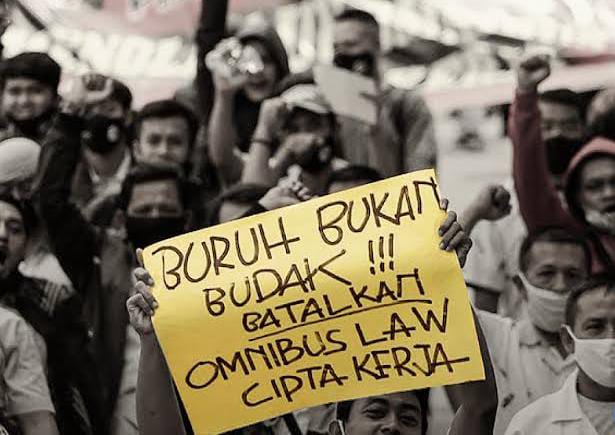 BURUH BUKAN
BUDAK !!!
BATALKAN
OMNIBUS LAW
CIPTA KERJA